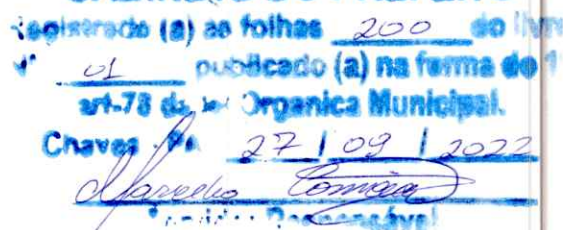 Registrado (a) as folhas 200 do livro
nº 01 publicado (a) na forma do 1º
art-78 da Lei Organica Municipal.
Chaves - Pa 27 / 09 / 2022
Marcelo
Servidor Responsável